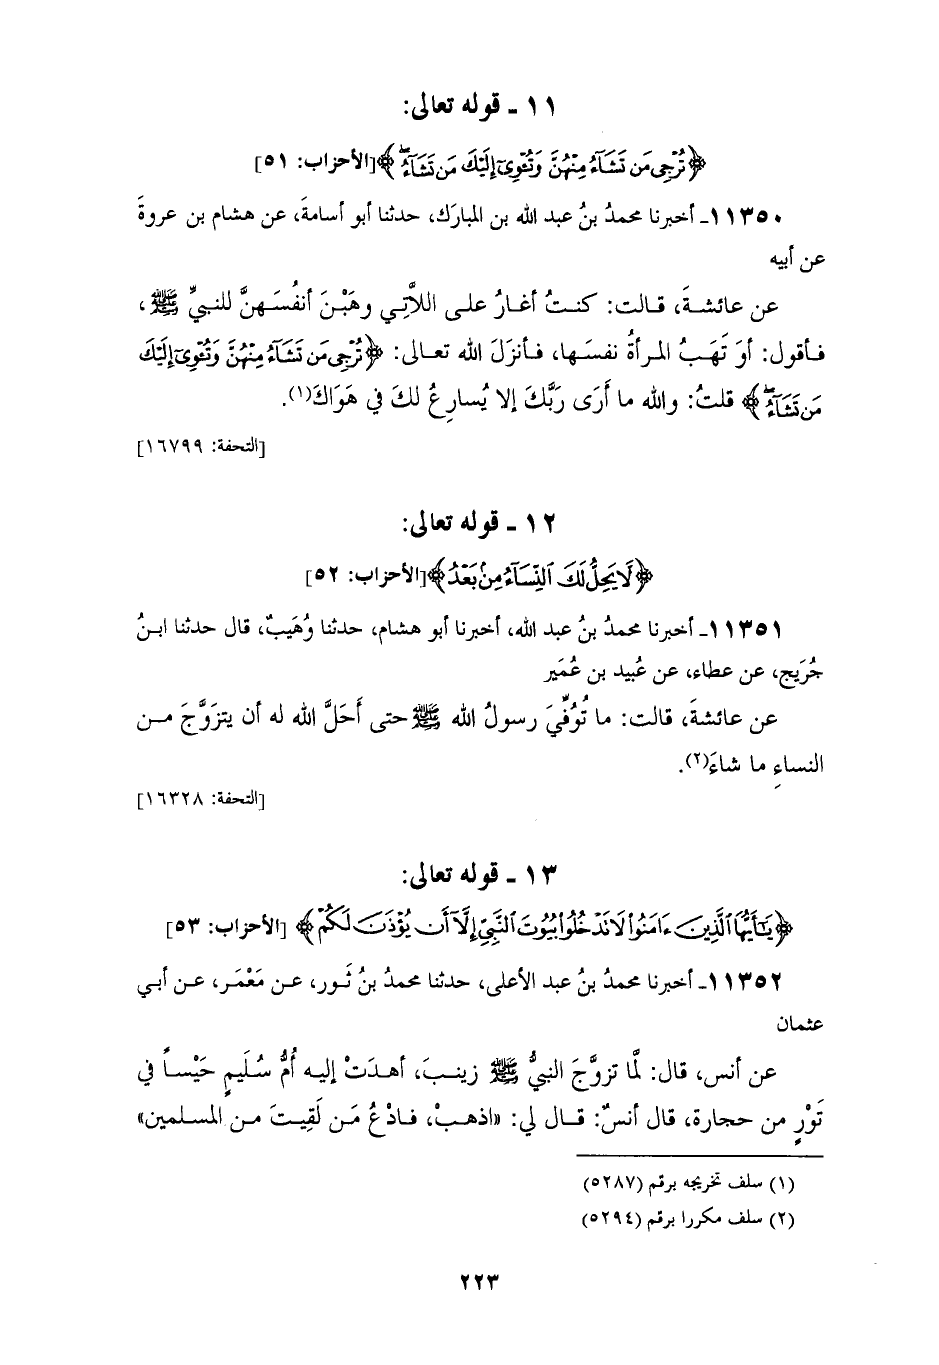 ١١ ـ قوله تعالى:
﴿تُرْجِى مَن تَشَآءُ مِنْهُنَّ وَتُـْٔوِىٓ إِلَيْكَ مَن تَشَآءُۖ﴾ [الأحزاب: ٥١]
١١٣٥٠ـ أخبرنا محمدُ بنُ عبد الله بن المبارك، حدثنا أبو أسامةَ، عن هشام بن عروةَ
عن أبيه
عن عائشةَ، قالت: كنتُ أغارُ على اللاَّتِي وهَبْنَ أنفُسَهنَّ للنبيِّ ﷺ،
فأقول: أوَ تَهَبُ المرأةُ نفسَها، فأنزلَ الله تعالى: ﴿تُرْجِى مَن تَشَآءُ مِنْهُنَّ وَتُـْٔوِىٓ إِلَيْكَ
مَن تَشَآءُۖ﴾ قلتُ: والله ما أَرَى رَبَّكَ إلا يُسارِعُ لكَ في هَوَاكَ(١).
[التحفة: ١٦٧٩٩]
١٢ ـ قوله تعالى:
﴿لَا يَحِلُّ لَكَ ٱلنِّسَآءُ مِنۢ بَعْدُ﴾ [الأحزاب: ٥٢]
١١٣٥١ـ أخبرنا محمدُ بنُ عبد الله، أخبرنا أبو هشام، حدثنا وُهَيبٌ، قال حدثنا ابنُ
جُرَيج، عن عطاء، عن عُبيد بن عُمَير
عن عائشةَ، قالت: ما تُوُفِّيَ رسولُ الله ﷺ حتى أَحَلَّ الله له أن يتزَوَّجَ من
النساءِ ما شاءَ(٢).
[التحفة: ١٦٣٢٨]
١٣ ـ قوله تعالى:
﴿يَٰٓأَيُّهَا ٱلَّذِينَ ءَامَنُوا۟ لَا تَدْخُلُوا۟ بُيُوتَ ٱلنَّبِىِّ إِلَّآ أَن يُؤْذَنَ لَكُمْ﴾ [الأحزاب: ٥٣]
١١٣٥٢ـ أخبرنا محمدُ بنُ عبد الأعلى، حدثنا محمدُ بنُ ثَور، عن مَعْمَر، عن أبي
عثمان
عن أنس، قال: لمَّا تزوَّجَ النبيُّ ﷺ زينبَ، أهدَتْ إليه أُمُّ سُلَيمٍ حَيْساً في
تَوْرٍ من حجارة، قال أنسٌ: قال لي: «اذهبْ، فادْعُ مَن لَقِيتَ من المسلمين»
(١) سلف تخريجه برقم (٥٢٨٧)
(٢) سلف مكررا برقم (٥٢٩٤)
٢٢٣